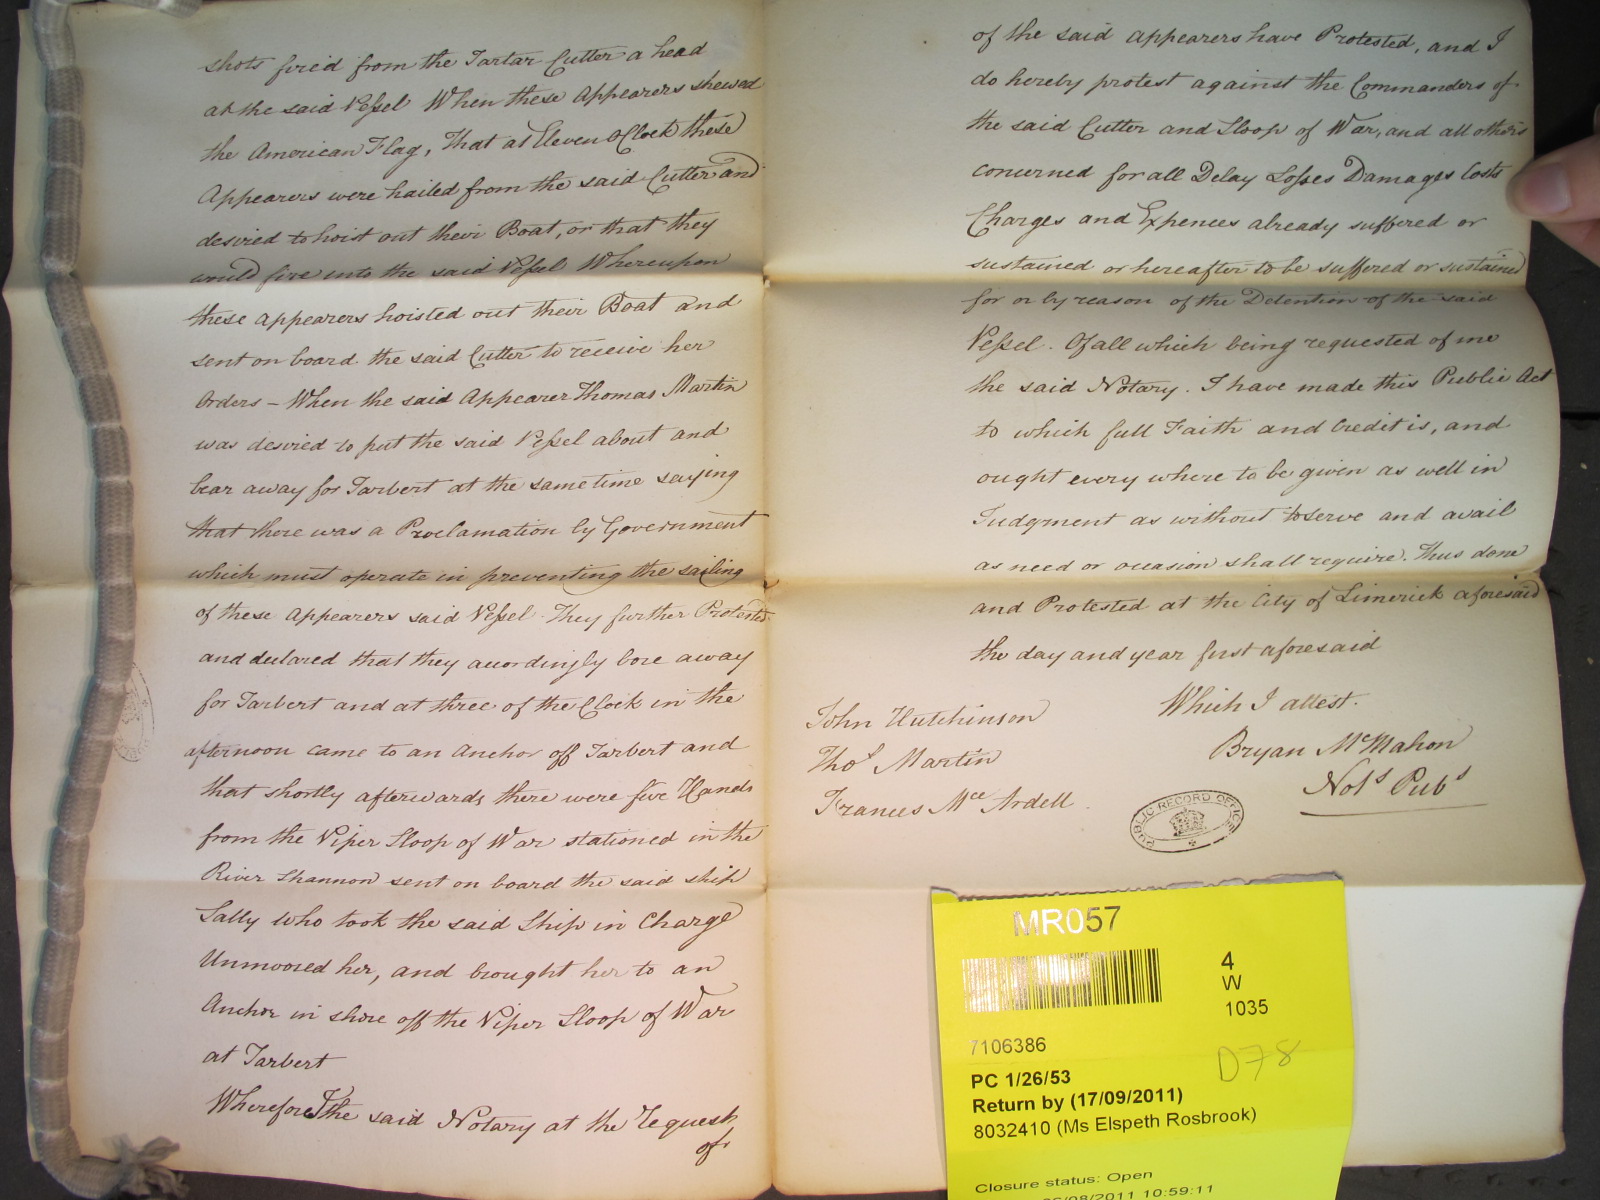 shots fired from the Tartar Cutter a head
at the said Vessel When these Appearers shewed
the American Flag, That at Eleven OClock these
Appearers were hailed from the said Cutter and
desired to hoist out their Boat, or that they
would fire into the said Vessel Whereupon
these Appearers hoisted out their Boat and
sent on board the said Cutter to receive her
Orders - When the said Appearer Thomas Martin
was desired to put the said Vessel about and
bear away for Tarbert at the same time saying
that there was a Proclamation by Government
which must operate in preventing the sailing
of these Appearers said Vessel. They further Protested
and declared that they accordingly bore away
for Tarbert and at three of the Clock in the
afternoon came to an Anchor off Tarbert and
that shortly afterwards there were five Hands
from the Viper Sloop of War stationed in the
River Shannon sent on board the said ship
Sally who took the said Ship in Charge
Unmoored her, and brought her to an
Anchor in shore off the Viper Sloop of War
at Tarbert
Wherefore I the said Notary at the Request
of
of the said Appearers have Protested, and I
do hereby protest against the Commanders of
the said Cutter and Sloop of War, and all others
concerned for all Delay Losses Damages Costs
Charges and Expences already suffered or
sustained or hereafter to be suffered or sustained
for or by reason of the Detention of the said
Vessel. Of all which being requested of me
the said Notary. I have made this Public Act
to which full Faith and Credit is, and
ought every where to be given as well in
Judgment as without to serve and avail
as need or occasion shall require. Thus done
and Protested at the City of Limerick aforesaid
the day and year first aforesaid
Which I attest.
John Hutchinson
Thos Martin
Frances Mcc Ardell
Bryan McMahon
Nots Pubs
PUBLIC RECORD OFFICE
MR057
4
W
1035
7106386
D78
PC 1/26/53
Return by (17/09/2011)
8032410 (Ms Elspeth Rosbrook)
Closure status: Open
/08/2011 10:59:11